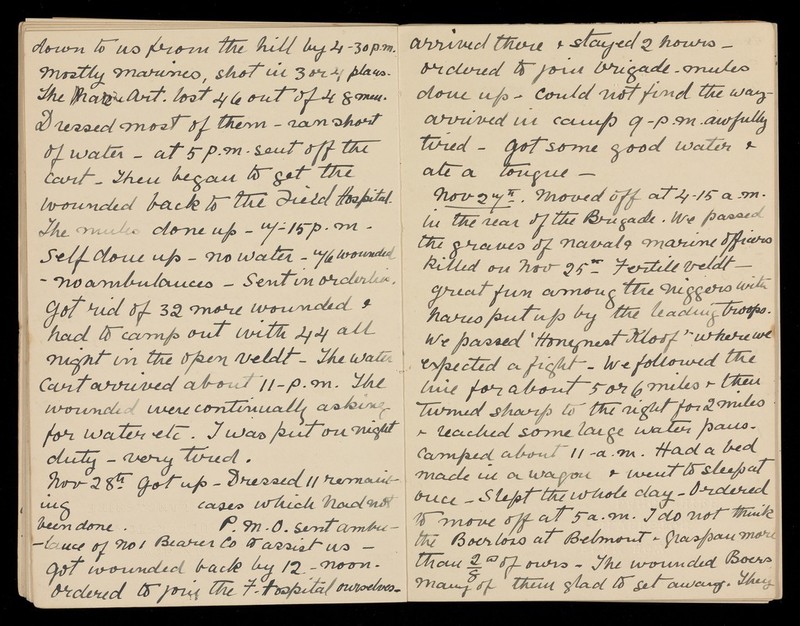 down to us from the hill by 4-30 p.m.
mostly marines, shot in 3 or 4 places.
The Art. lost 46 out of 48 men.
Dressed most of them - ran short
of water - at 5 P.m. sent off the
cart - Then began to get the
wounded back to the Field Hospital.
The mules done up - 4/-15 p.m. -
Self done up - no water - 46 wounded
- no ambulances - Sent in orderlies.
Got rid of 32 more wounded &
had to camp out with 44 all
night in the open veldt - The water
Cart arrived about 11-p.m. The
wounded were continually asking
for water etc. I was put on night
duty - very tired.
Nov 28th got up - Dressed 11 remain-
ing cases which had not
been done. P.M.O. sent ambu-
-lance of No 1 Bearer Co to assist us -
got wounded back by 12 - noon.
Ordered to join the F. Hospital ourselves -
arrived there & stayed 2 hours -
ordered to join brigade - mules
done up - could not find the way -
arrived in camp 9-p.m. awfully
tired - got some good water &
ate a tongue -
Nov 27th. Moved off at 4-15 a.m.
in the rear of the Brigade. We passed
the graves of naval & marine officers
killed on Nov 25th Fertile veldt -
great fun among the niggers with
hares put up by the leading troops.
We passed 'Honeynest Kloof" where we
expected a fight - We followed the
line for about 5 or 6 miles & then
turned sharp to the right for 2 miles
& reached some large water pans -
Camped about 11-a.m. Had a bed
made in a wagon & went to sleep at
once - Slept the whole day - Ordered
to move off at 5 a.m. I do not think
the Boer loss at Belmont & Graspan more
than of ours - The wounded Boers
many of them glad to get away. They